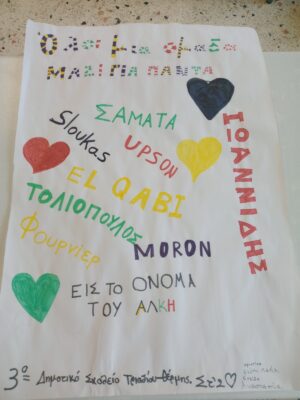 Όλοι μια ομάδα
ΜΑΖΙ ΓΙΑ ΠΑΝΤΑ
ΣΑΜΑΤΑ
Sloukas
UPSON
ΙΩΑΝΝΙΔΗΣ
EL QABI
ΤΟΛΙΟΠΟΥΛΟΣ
Φουρνιέρ
MORON
ΕΙΣ ΤΟ ΟΝΟΜΑ
ΤΟΥ ΑΛΚΗ
3º Δημοτικό Σχολείο Τριαδίου Θέρμης, Στ'2